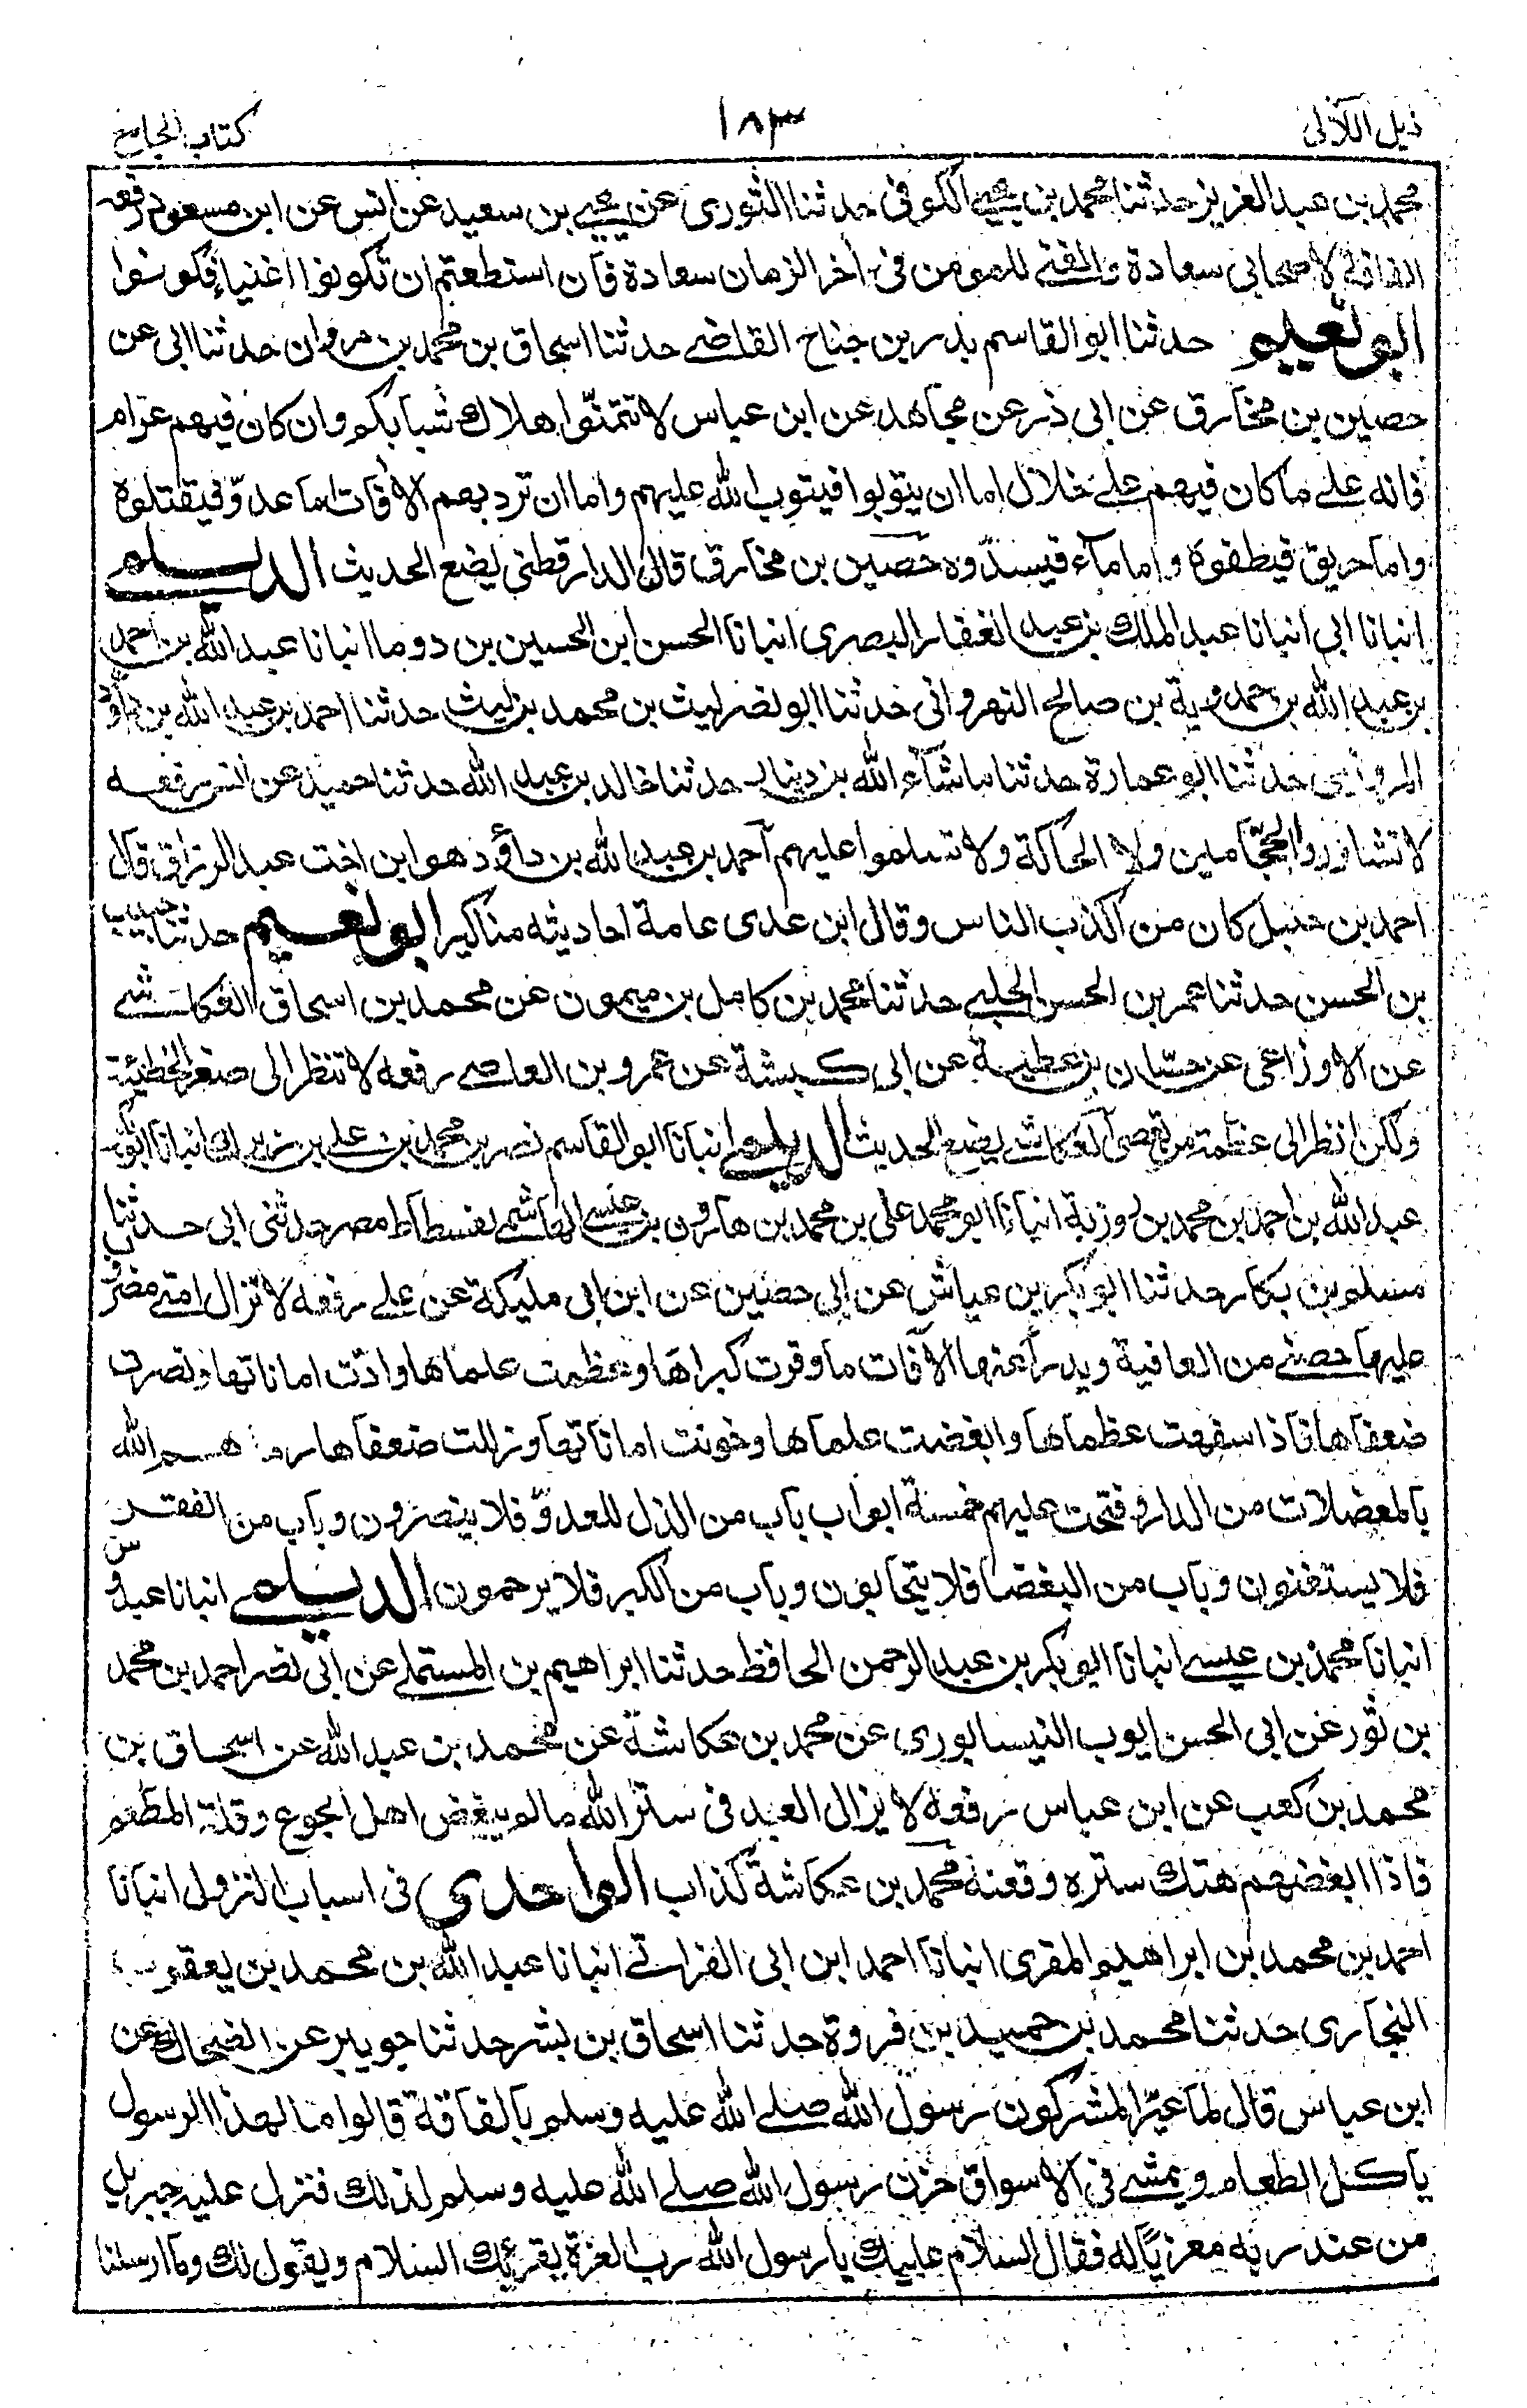 ذيل اللآلى ١٨٣ كتاب الجامع
محمد بن عبد العزيز حدثنا محمد بن يحيى الكوفى حدثنا الثورى عن يحيى بن سعيد عن انس عن ابن مسعود رفعه
الفاقة لاصحابى سعادة والغنى للمومن فى اخر الزمان سعادة فان استطعتم ان تكونوا اغنياء فكونوا
ابو نعيم حدثنا ابو القاسم بدر بن جناح القاضى حدثنا اسحاق بن محمد بن مروان حدثنا ابى عن
حصين بن مخارق عن ابى ذر عن مجاهد عن ابن عباس لا تتمنّوا هلاك شبابكم وان كان فيهم عرام
فانه على ما كان فيهم على خلال اما ان يتوبوا فيتوب الله عليهم واما ان ترد بهم الافات اما عدوّ فيقتلوه
واما حريق فيطفوه واما ماء فيسدّوه حصين بن مخارق قال الدارقطنى يضع الحديث الديلمى
انبانا ابى انبانا عبد الملك بن عبد الغفار البصرى انبانا الحسن ابن الحسين بن دوما انبانا عبد الله بن احمد
بن عبد الله بن حمدوية بن صالح النهروانى حدثنا ابو نصر ليث بن محمد بن ليث حدثنا احمد بن عبد الله بن داؤد
المروزى حدثنا ابو عمارة حدثنا ماشاء الله بن دينار حدثنا خالد بن عبد الله حدثنا حميد عن انس رفعه
لا تشاوروا الحجّامين ولا الحاكة ولا تسلموا عليهم احمد بن عبد الله بن داؤد هو ابن اخت عبد الرزاق قال
احمد بن حنبل كان من اكذب الناس وقال ابن عدى عامة احاديثه مناكير ابو نعيم حدثنا حبيب
بن الحسن حدثنا عمر بن الحسن الحلبى حدثنا محمد بن كامل بن ميمون عن محمد بن اسحاق العكاشى
عن الاوزاعى عن حسّان بن عطية عن ابى كبشة عن عمرو بن العاص رفعه لا تنظر الى صغر الخطيئة
ولكن انظر الى عظمة من تعصى العكاشى يضع الحديث الديلمى انبانا ابو القاسم نصر بن محمد بن على بن زيرك انبانا ابو
عبد الله بن احمد بن محمد بن روزبة انبانا ابو محمد على بن محمد بن هارون بن عيسى الهاشمى بفسطاط مصر حدثنى ابى حدثنا
مسلم بن بكار حدثنا ابو بكر بن عياش عن ابى حصين عن ابن ابى مليكة عن على رفعه لا تزال امتى مضروب
عليها حصنى من العافية ويدرأ عنها الافات ما وقرت كبراها وعظمت علماها وادّت اماناتها ونصرت
ضعفاها فاذا سفهت عظماها وابغضت علماها وخونت اماناتها وزللت ضعفاها رماهم الله
بالمعضلات من الدا وفتحت عليهم خمسة ابواب باب من الذل للعدوّ فلا ينصرون وباب من الفقر
فلا يستغنون وباب من البغضا فلا يتحابون وباب من الكبر فلا يرحمون الديلمى انبانا عبدوس
انبانا محمد بن عيسى انبانا ابو بكر بن عبد الرحمن الحافظ حدثنا ابراهيم بن المستملى عن ابى نصر احمد بن محمد
بن ثور عن ابى الحسن ايوب النيسابورى عن محمد بن عكاشة عن محمد بن عبد الله عن اسحاق بن
محمد بن كعب عن ابن عباس رفعه لا يزال العبد فى ستر الله ما لم يبغض اهل الجوع وقلة المطعم
فاذا ابغضهم هتك ستره وقعنه محمد بن عكاشة كذاب الواحدى فى اسباب النزول انبانا
احمد بن محمد بن ابراهيم المقرى انبانا احمد ابن ابى الفراتى انبانا عبد الله بن محمد بن يعقوب
البخارى حدثنا محمد بن حميد بن فروة حدثنا اسحاق بن بشر حدثنا جويبر عن الضحاك عن
ابن عباس قال لما عيّر المشركون رسول الله صلى الله عليه وسلم بالفاقة قالوا ما لهذا الرسول
ياكل الطعام ويمشى فى الاسواق حزن رسول الله صلى الله عليه وسلم لذلك فنزل عليه جبريل
من عند ربه معزيًا له فقال السلام عليك يا رسول الله رب العزة يقرئك السلام ويقول لك وما ارسلنا